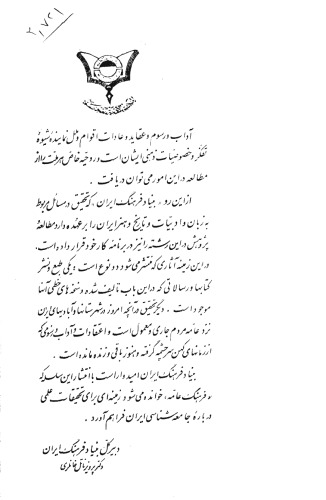 ۲٫۷۲۱
آداب و رسوم و عقاید و عادات اقوام و ملل نمایندهٔ شیوهٔ
تفکر و خصوصیات ذهنی ایشان است و روحیهٔ خاص هر ملت را از
مطالعه در این امور می‌توان دریافت .
از این رو ، بنیاد فرهنگ ایران ، که تحقیق در مسائل مربوط
به زبان و ادبیات و تاریخ و هنر ایران را بر عهده دارد مطالعه و
پژوهش در این رشته را نیز در برنامهٔ کار خود قرار داده است .
در این زمینه آثاری که منتشر می‌شود دو نوع است : یکی طبع و نشر
کتابها و رسالاتی که در این باب تألیف شده و نسخه‌های خطی آنها
موجود است . دیگر تحقیق در آنچه امروز در شهرستانها و آبادیهای ایران
نزد عامهٔ مردم جاری و معمول است و اعتقادات و آدابی که
از زمانهای کهن سرچشمه گرفته و هنوز باقی و زنده مانده است .
بنیاد فرهنگ ایران امیدوار است با انتشار این سلسله که
«فرهنگ عامه» خوانده می‌شود زمینه‌ای برای تحقیقات علمی
دربارهٔ جامعه شناسی ایران فراهم آورد .
دبیر کل بنیاد فرهنگ ایران
دکتر پرویز ناتل خانلری